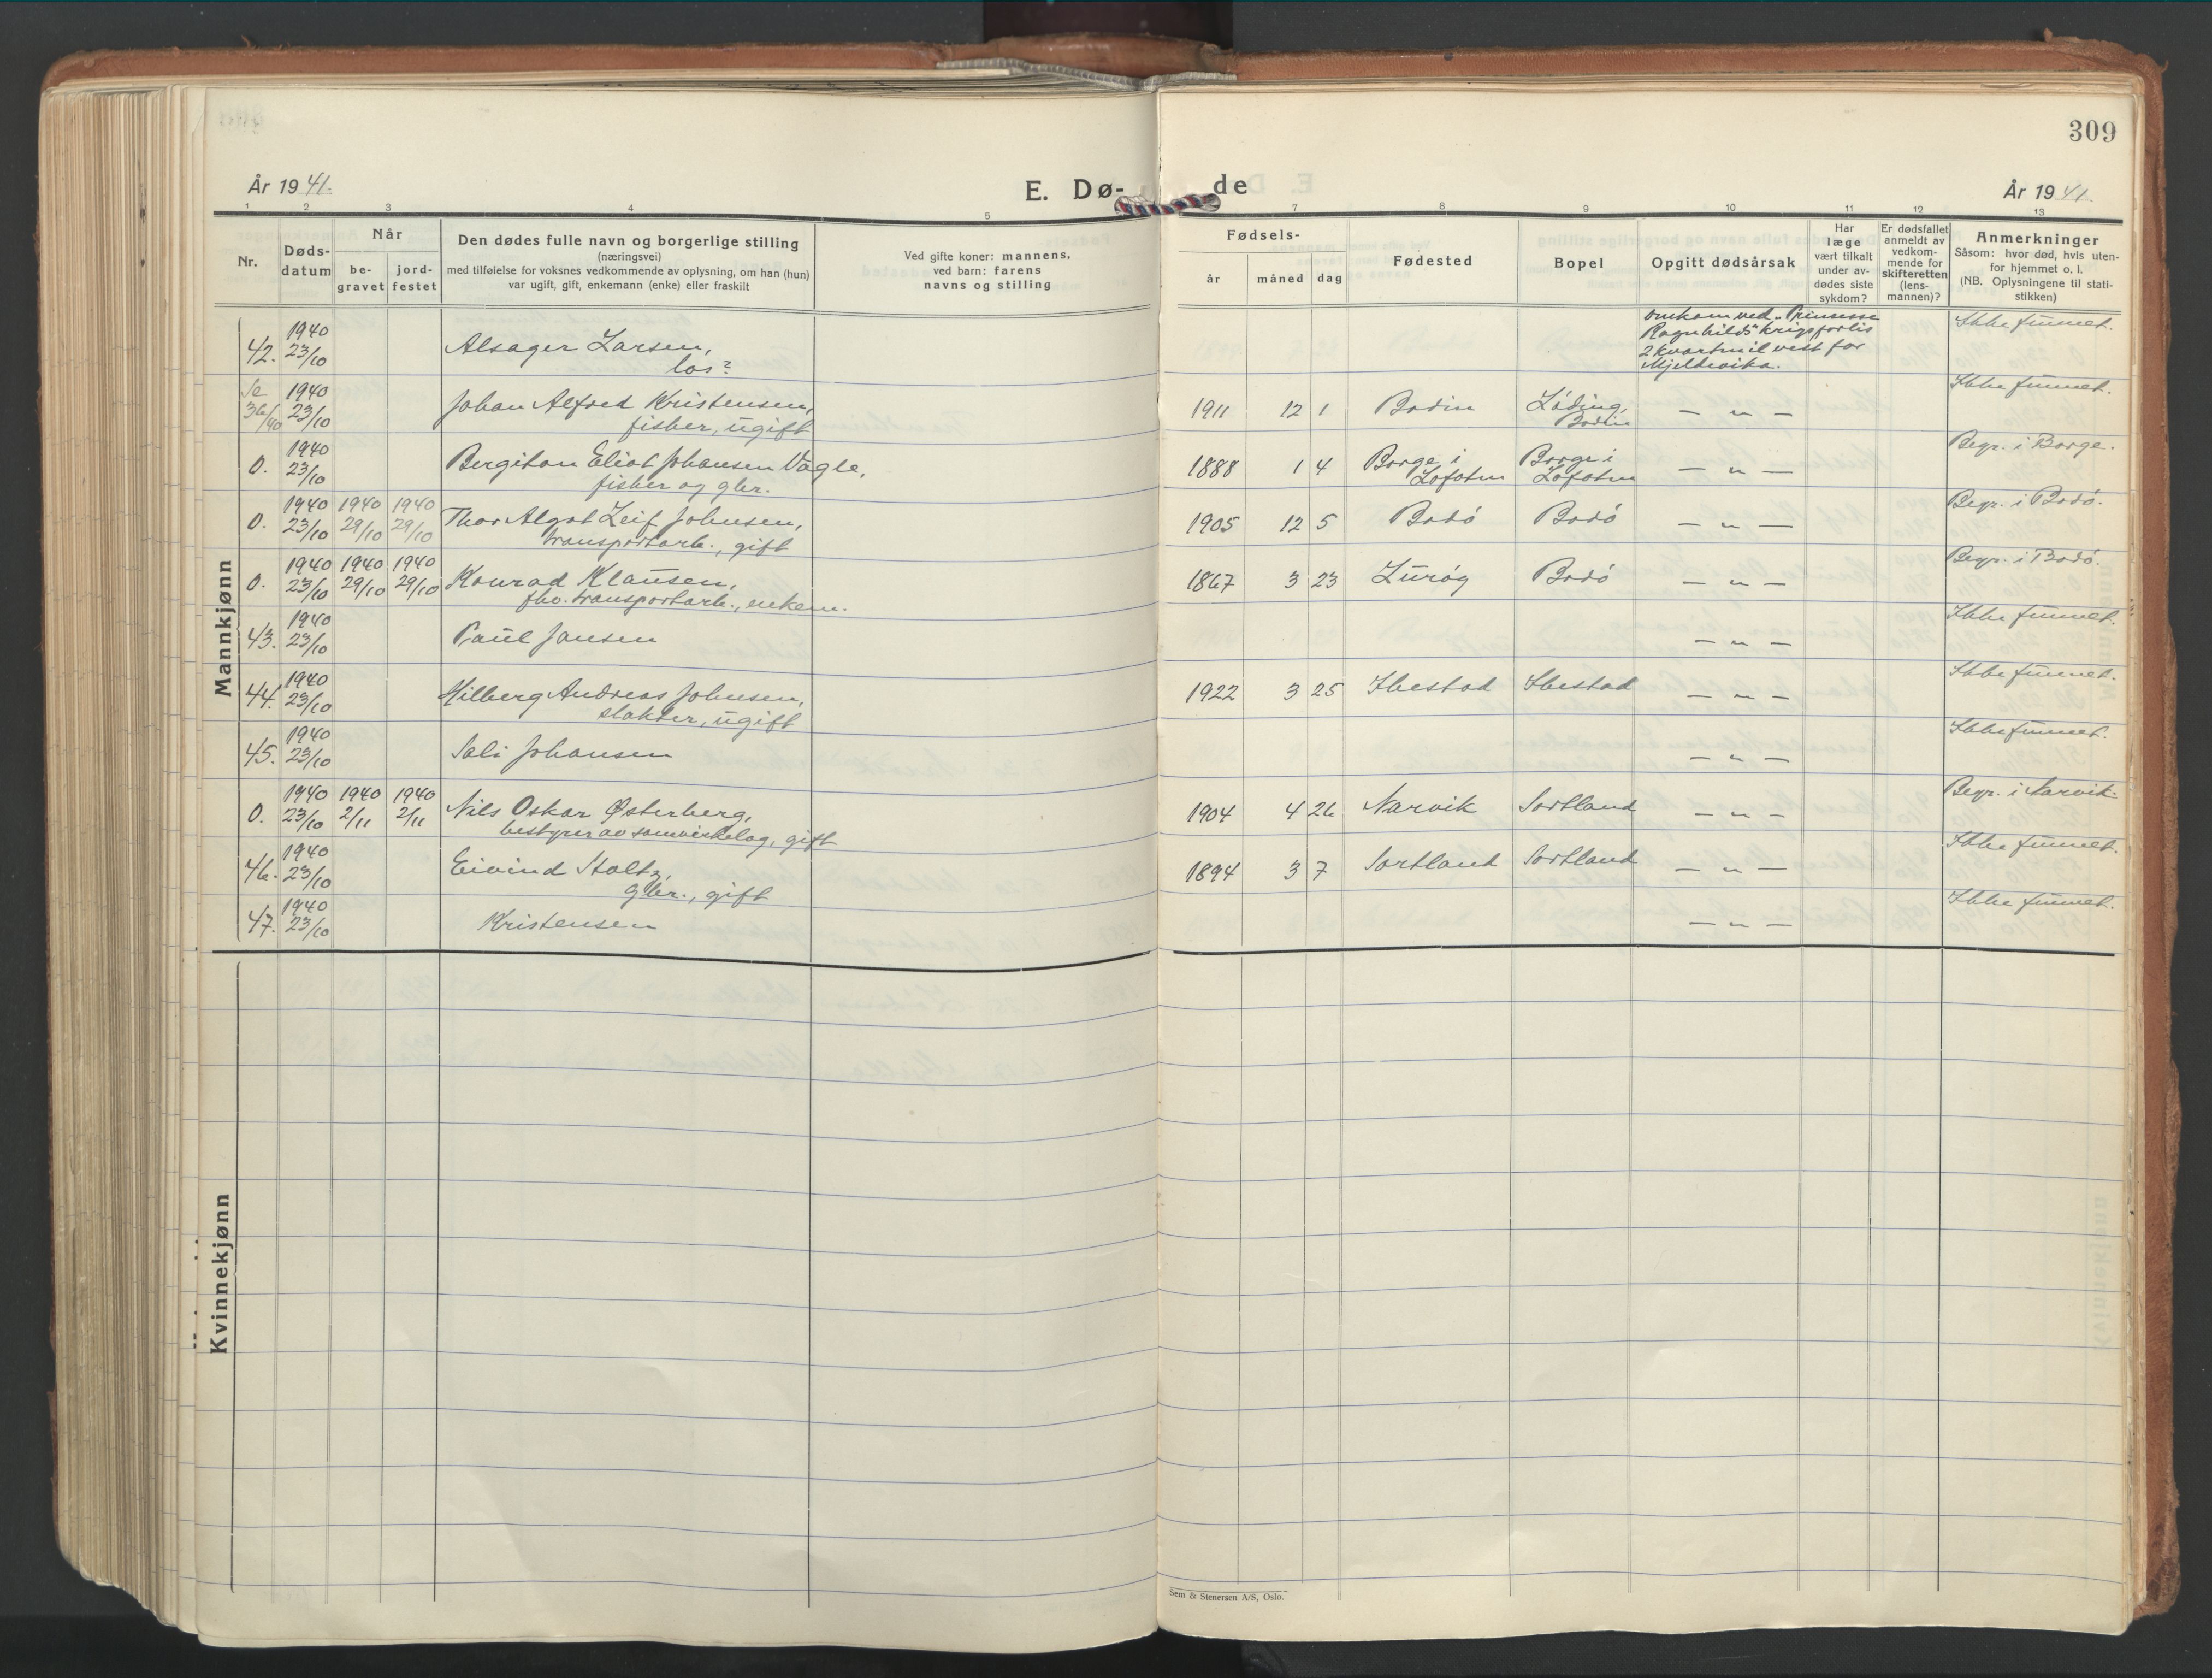 309
År 1941.
E. Dø-
de
År 1941.
1 2 3 4 5 7 8 9 10 11 12 13
Nr.
Døds-
datum
Når
be-
gravet
jord-
festet
Den dødes fulle navn og borgerlige stilling
(næringsvei)
med tilføielse for voksnes vedkommende av oplysning, om han (hun)
var ugift, gift, enkemann (enke) eller fraskilt
Ved gifte koner: mannens,
ved barn: farens
navns og stilling
Fødsels-
år måned dag
Fødested
Bopel
Opgitt dødsårsak
Har
læge
vært tilkalt
under av-
dødes siste
sykdom?
Er dødsfallet
anmeldt av
vedkom-
mende for
skifteretten
(lens-
mannen)?
Anmerkninger
Såsom: hvor død, hvis uten-
for hjemmet o. l.
(NB. Oplysningene til stati-
stikken)
Mannkjønn
42. 1940 23/10 Alsager Larsen,
los?
omkom ved "Prinsesse
Ragnhilds" krigsforlis
2 kvartmil vest for
Mjeldevika.
Ikke funnet.
Se 36/40 1940 23/10 Johan Alfred Kristensen,
fisker, ugift
1911 12 1 Bodin Løding, Bodin — " — Ikke funnet.
0. 1940 23/10 Bergiton Eliot Johansen Vagle,
fisker og gbr.
1888 1 4 Borge i Lofoten Borge i Lofoten — " — Begr. i Borge.
0. 1940 23/10 1940 29/10 1940 29/10 Thor Algot Leif Johnsen,
transportarb., gift
1905 12 5 Bodø Bodø — " — Begr. i Bodø.
0. 1940 23/10 1940 29/10 1940 29/10 Konrad Klausen,
fhv. transportarb., enkem.
1867 3 23 Lurøy Bodø — " — Begr. i Bodø.
43. 1940 23/10 Paul Jansen — " — Ikke funnet.
44. 1940 23/10 Hilberg Andreas Johnsen,
slakter, ugift
1922 3 25 Ibestad Ibestad — " — Ikke funnet.
45. 1940 23/10 Sali Johansen — " — Ikke funnet.
0. 1940 23/10 1940 2/11 1940 2/11 Nils Oskar Østerberg,
bestyrer av samvirkelag, gift
1904 4 26 Narvik Sortland — " — Begr. i Narvik.
46. 1940 23/10 Eivind Holtz,
gbr., gift
1894 3 7 Sortland Sortland — " — Ikke funnet.
47. 1940 23/10 Kristensen — " — Ikke funnet.
Kvinnekjønn
Sem & Stenersen A/S, Oslo.